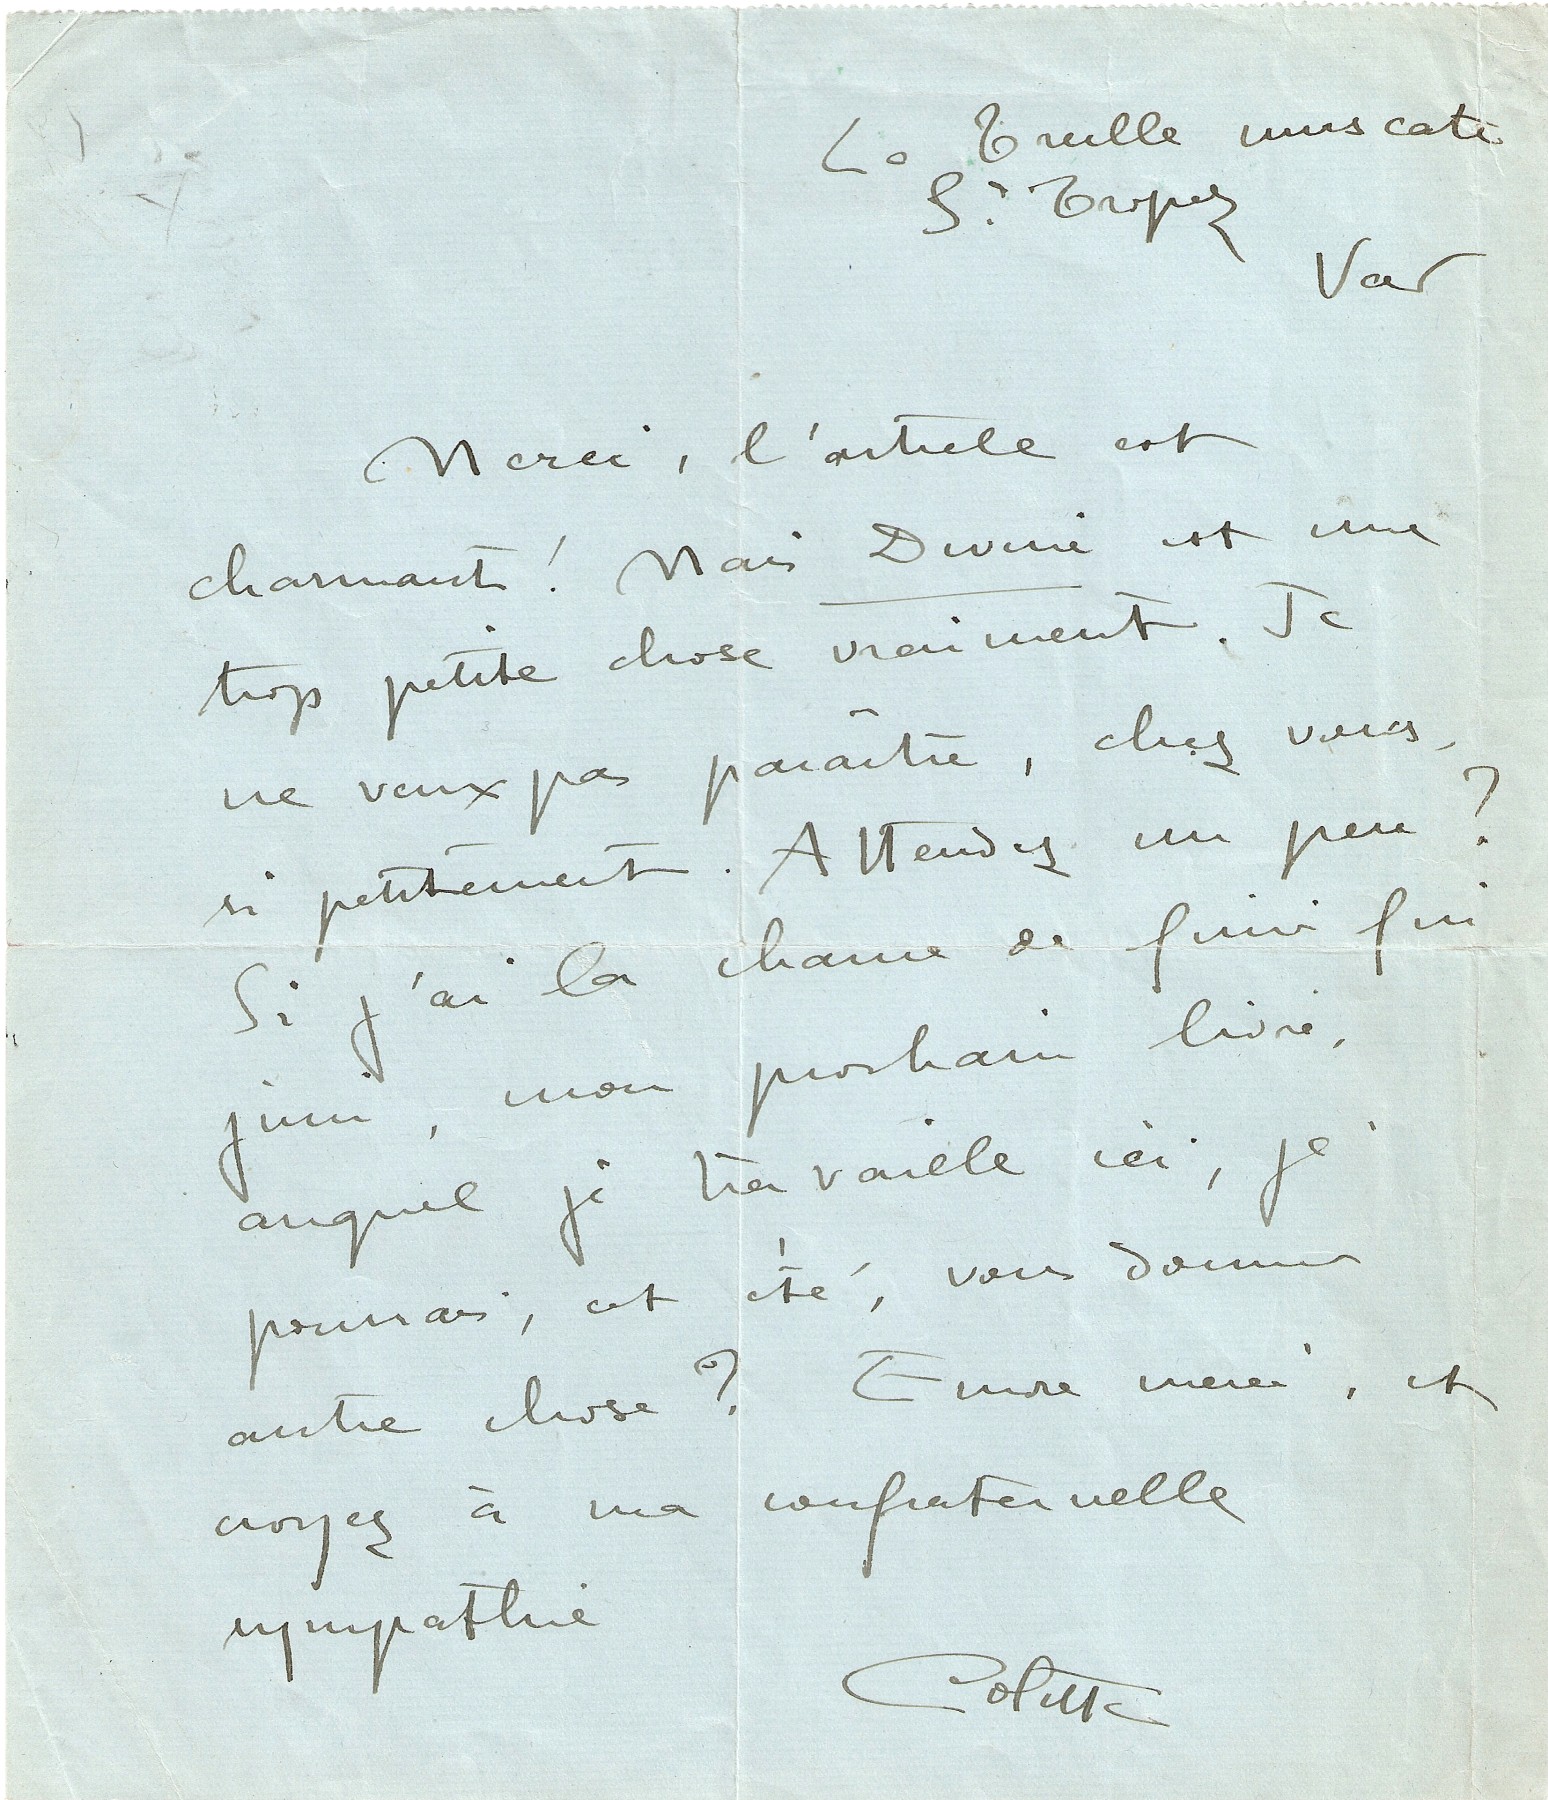 La Treille muscate
St Tropez
Var
Merci, l'article est
charmant! Mais Divine est une
trop petite chose vraiment. Je
ne veux pas paraître, chez vous,
si petitement. Attendez un peu?
Si j'ai la chance de finir fin
juin, mon prochain livre,
auquel je travaille ici, je
pourrai, cet été, vous donner
autre chose? Encore merci, et
croyez à ma confraternelle
sympathie
Colette